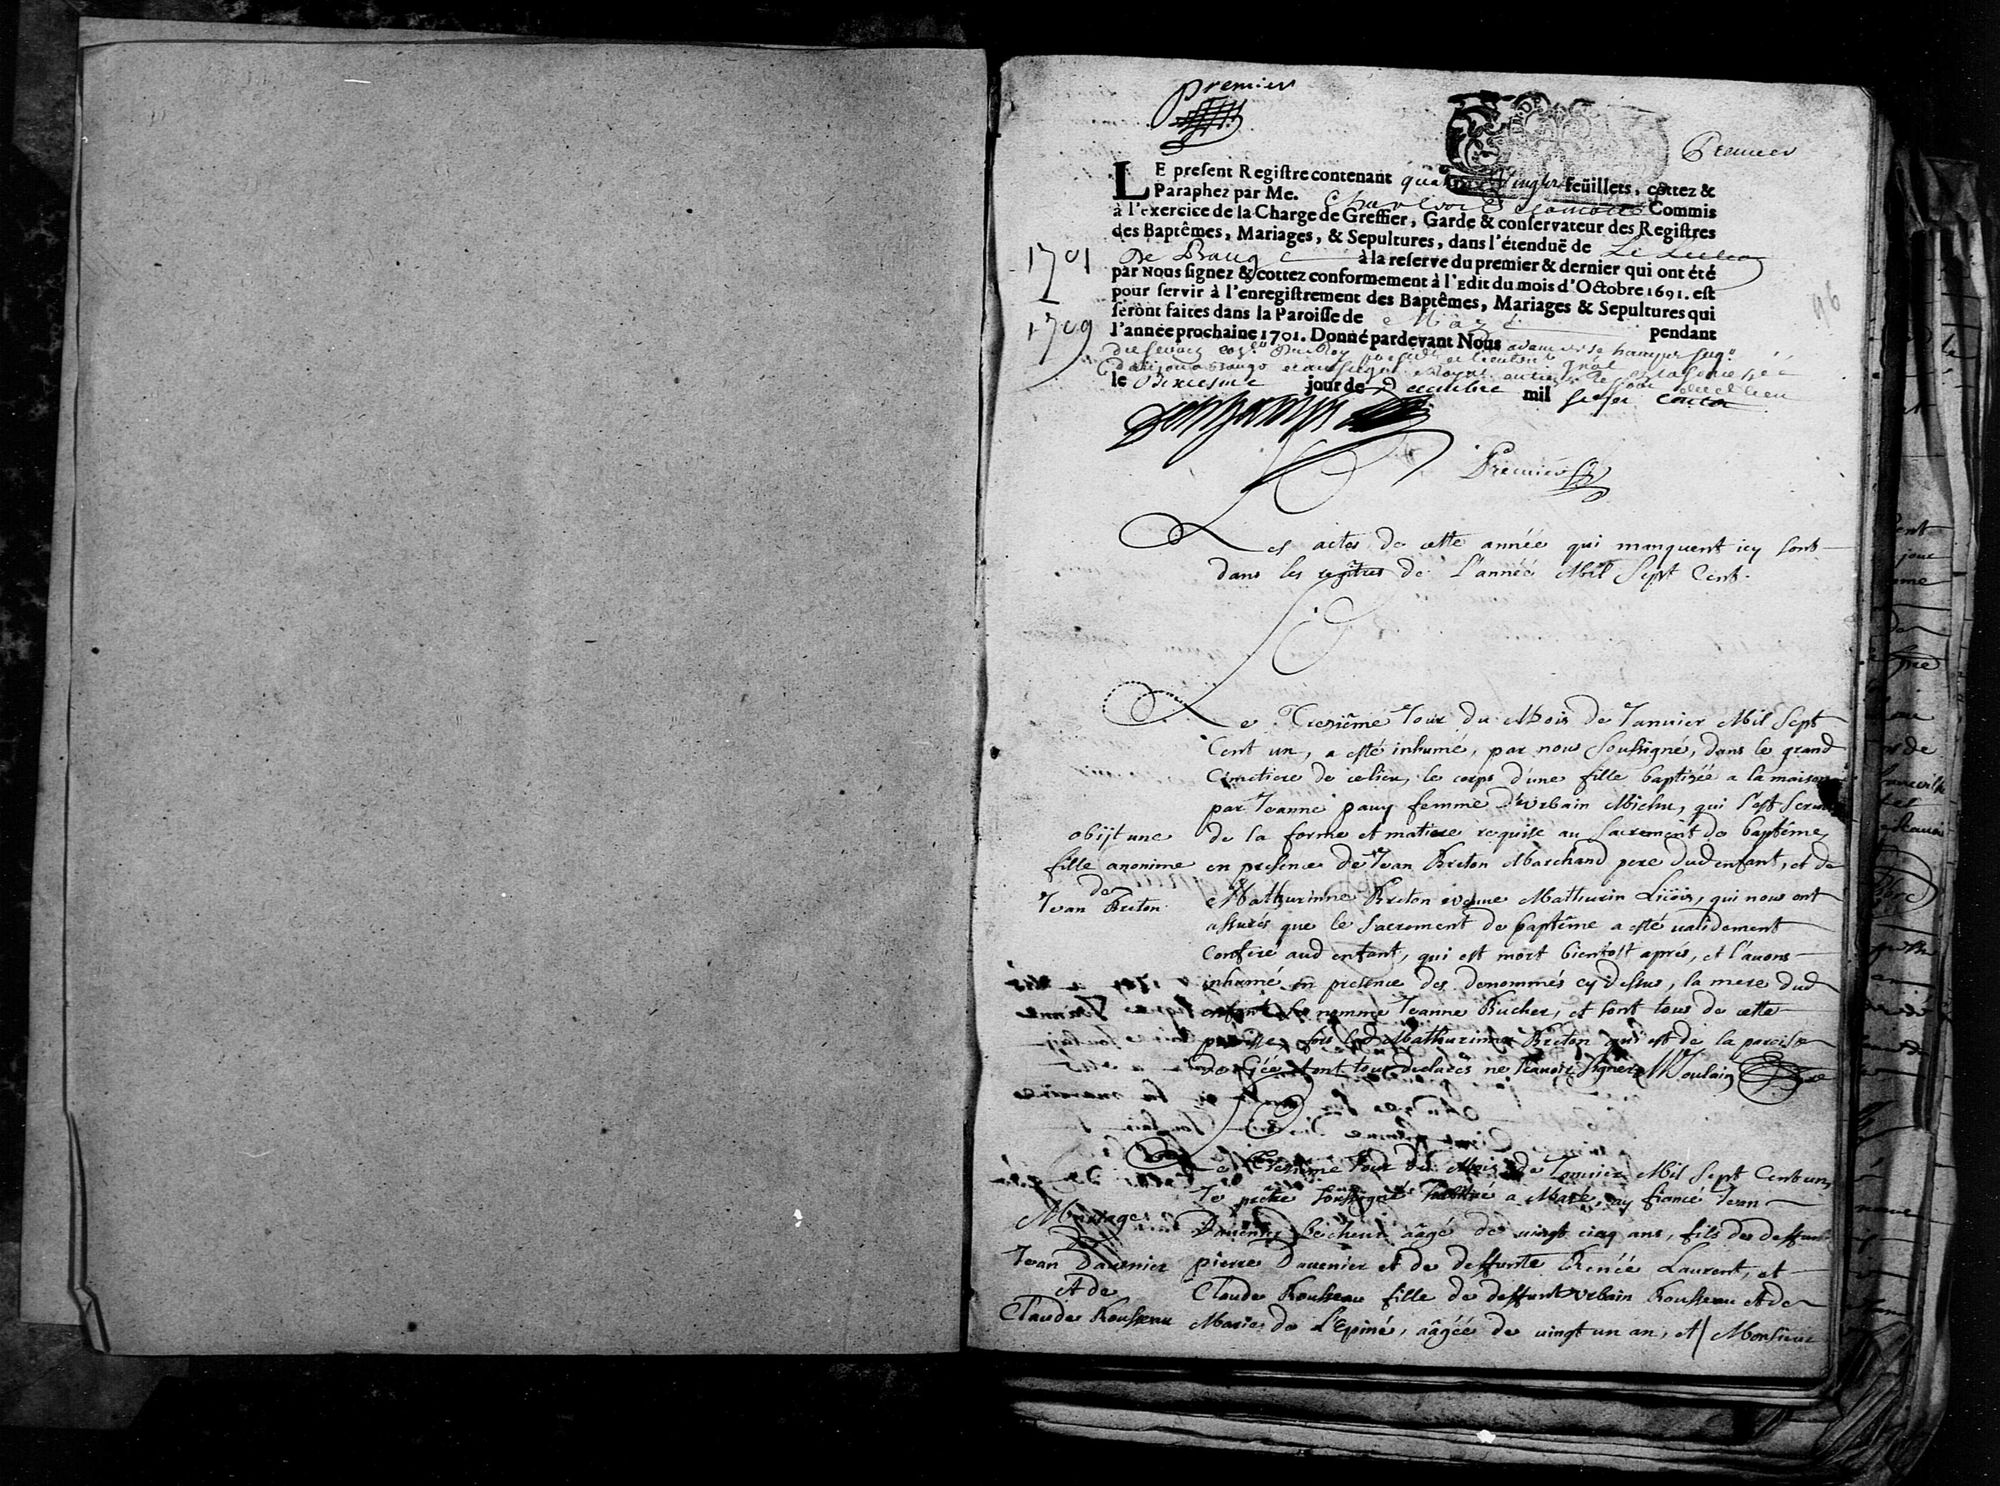 premier
Premier
LE present Registre contenant quatre vingts feüillets, cottez &
Paraphez par Me. Commis
à l'exercice de la Charge de Greffier, Garde & conservateur des Registres
des Baptêmes, Mariages, & Sepultures, dans l'étenduë de
De Baugé à la reserve du premier & dernier qui ont été
par Nous signez & cottez conformement à l'Edit du mois d'Octobre 1691. est
pour servir à l'enregistrement des Baptêmes, Mariages & Sepultures qui
seront faites dans la Paroisse de Mazé pendant
l'année prochaine 1701. Donné pardevant Nous
le jour de Decembre mil sept cents
1701
1709
96
Premier
Les actes de cette année qui manquent icy sont
dans les regîtres de l'année Mil Sept Cent.
Le Treziême Jour du Mois de Janvier Mil Sept
Cent un, a esté inhumé, par nous soussigné, dans le grand
Cimetiere de ce lieu, le corps d'une fille baptizéé a la maison
par Jeanne pauy femme d'Urbain Michu, qui s'est servie
de la forme et matiere requise au Sacrement de baptême,
en presence de Jean Breton Marchand pere dud enfant, et de
Mathurinne Breton veuve Mathurin Liçois, qui nous ont
assurés que le Sacrement de baptême a esté validement
Conferé aud enfant, qui est mort bientost aprés, et l'auons
inhumé en presence des denommés cy dessus, la mere dud
enfant se nomme Jeanne Bucher, et sont tous de cette
paroisse fors lad Mathurinne Breton qui est de la paroisse
de Géé, et ont tous declarés ne sçauoir signer
obijt une
fille anonime
de
Jean Breton
Le Treziéme Jour du Mois de Janvier Mil Sept Cent un,
Je prêtre soussigné habitué a Mazé, ay fiancé Jean
Dauenier aâgé de vingt cinq ans, fils de deffunt
pierre Dauenier et de deffunte Renéé Laurent, et
Claude Rousseau fille de deffunt Urbain Rousseau et de
Marie de L'Epiné, aâgéé de vingt un an, et Monsieur
Mariage
Jean Dauenier
et de
Claude Rousseau